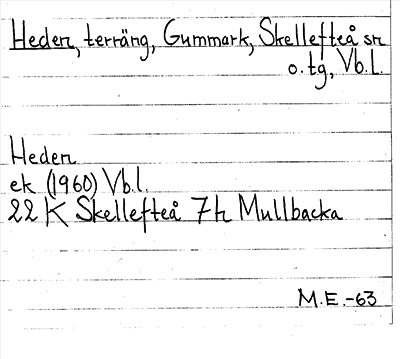 Heden, terräng, Gummark, Skellefteå sn
o. tg, Vb.L.
Heden
ek (1960) Vb.l.
22 K Skellefteå 7h Mullbacka
M.E.-63